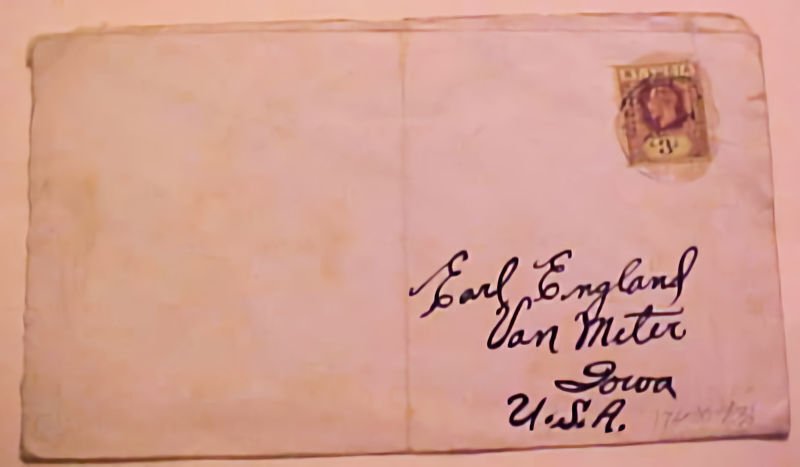 3
Earl England
Van Meter
Iowa
U.S.A.